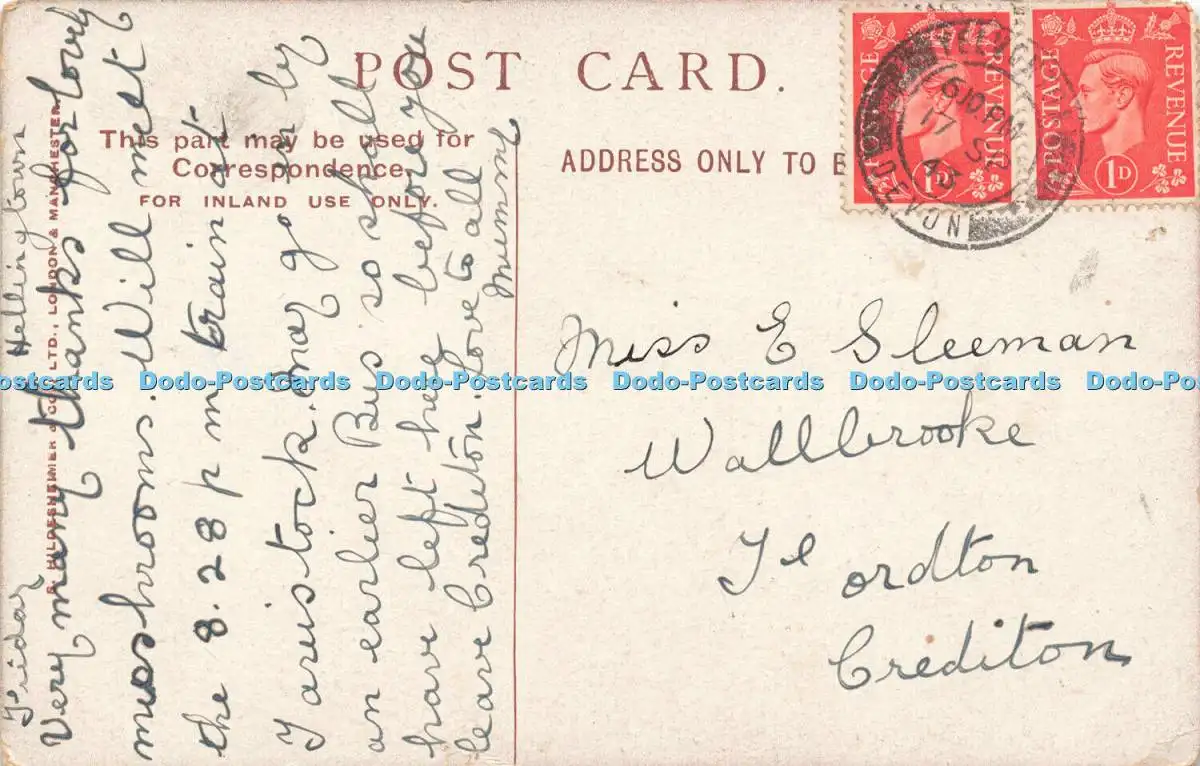 POST CARD.
This part may be used for
Correspondence.
FOR INLAND USE ONLY.
ADDRESS ONLY TO B
POSTAGE REVENUE
1D
POSTAGE REVENUE
1D
6 10 PM
17 SE
43
DEVON
HILDESHEIMER & CO., LTD., LONDON & MANCHESTER.
Hellingtown
Friday
Very many thanks for lovely
mushrooms. Will meet
the 8.28 p m train at
Tavistock. May go in by
an earlier Bus so shall
have left here before you
leave Crediton. Love to all
Mummy
Miss E Sleeman
Wallbrooke
Fordton
Crediton
Dodo-Postcards Dodo-Postcards Dodo-Postcards Dodo-Postcards Dodo-Postcards